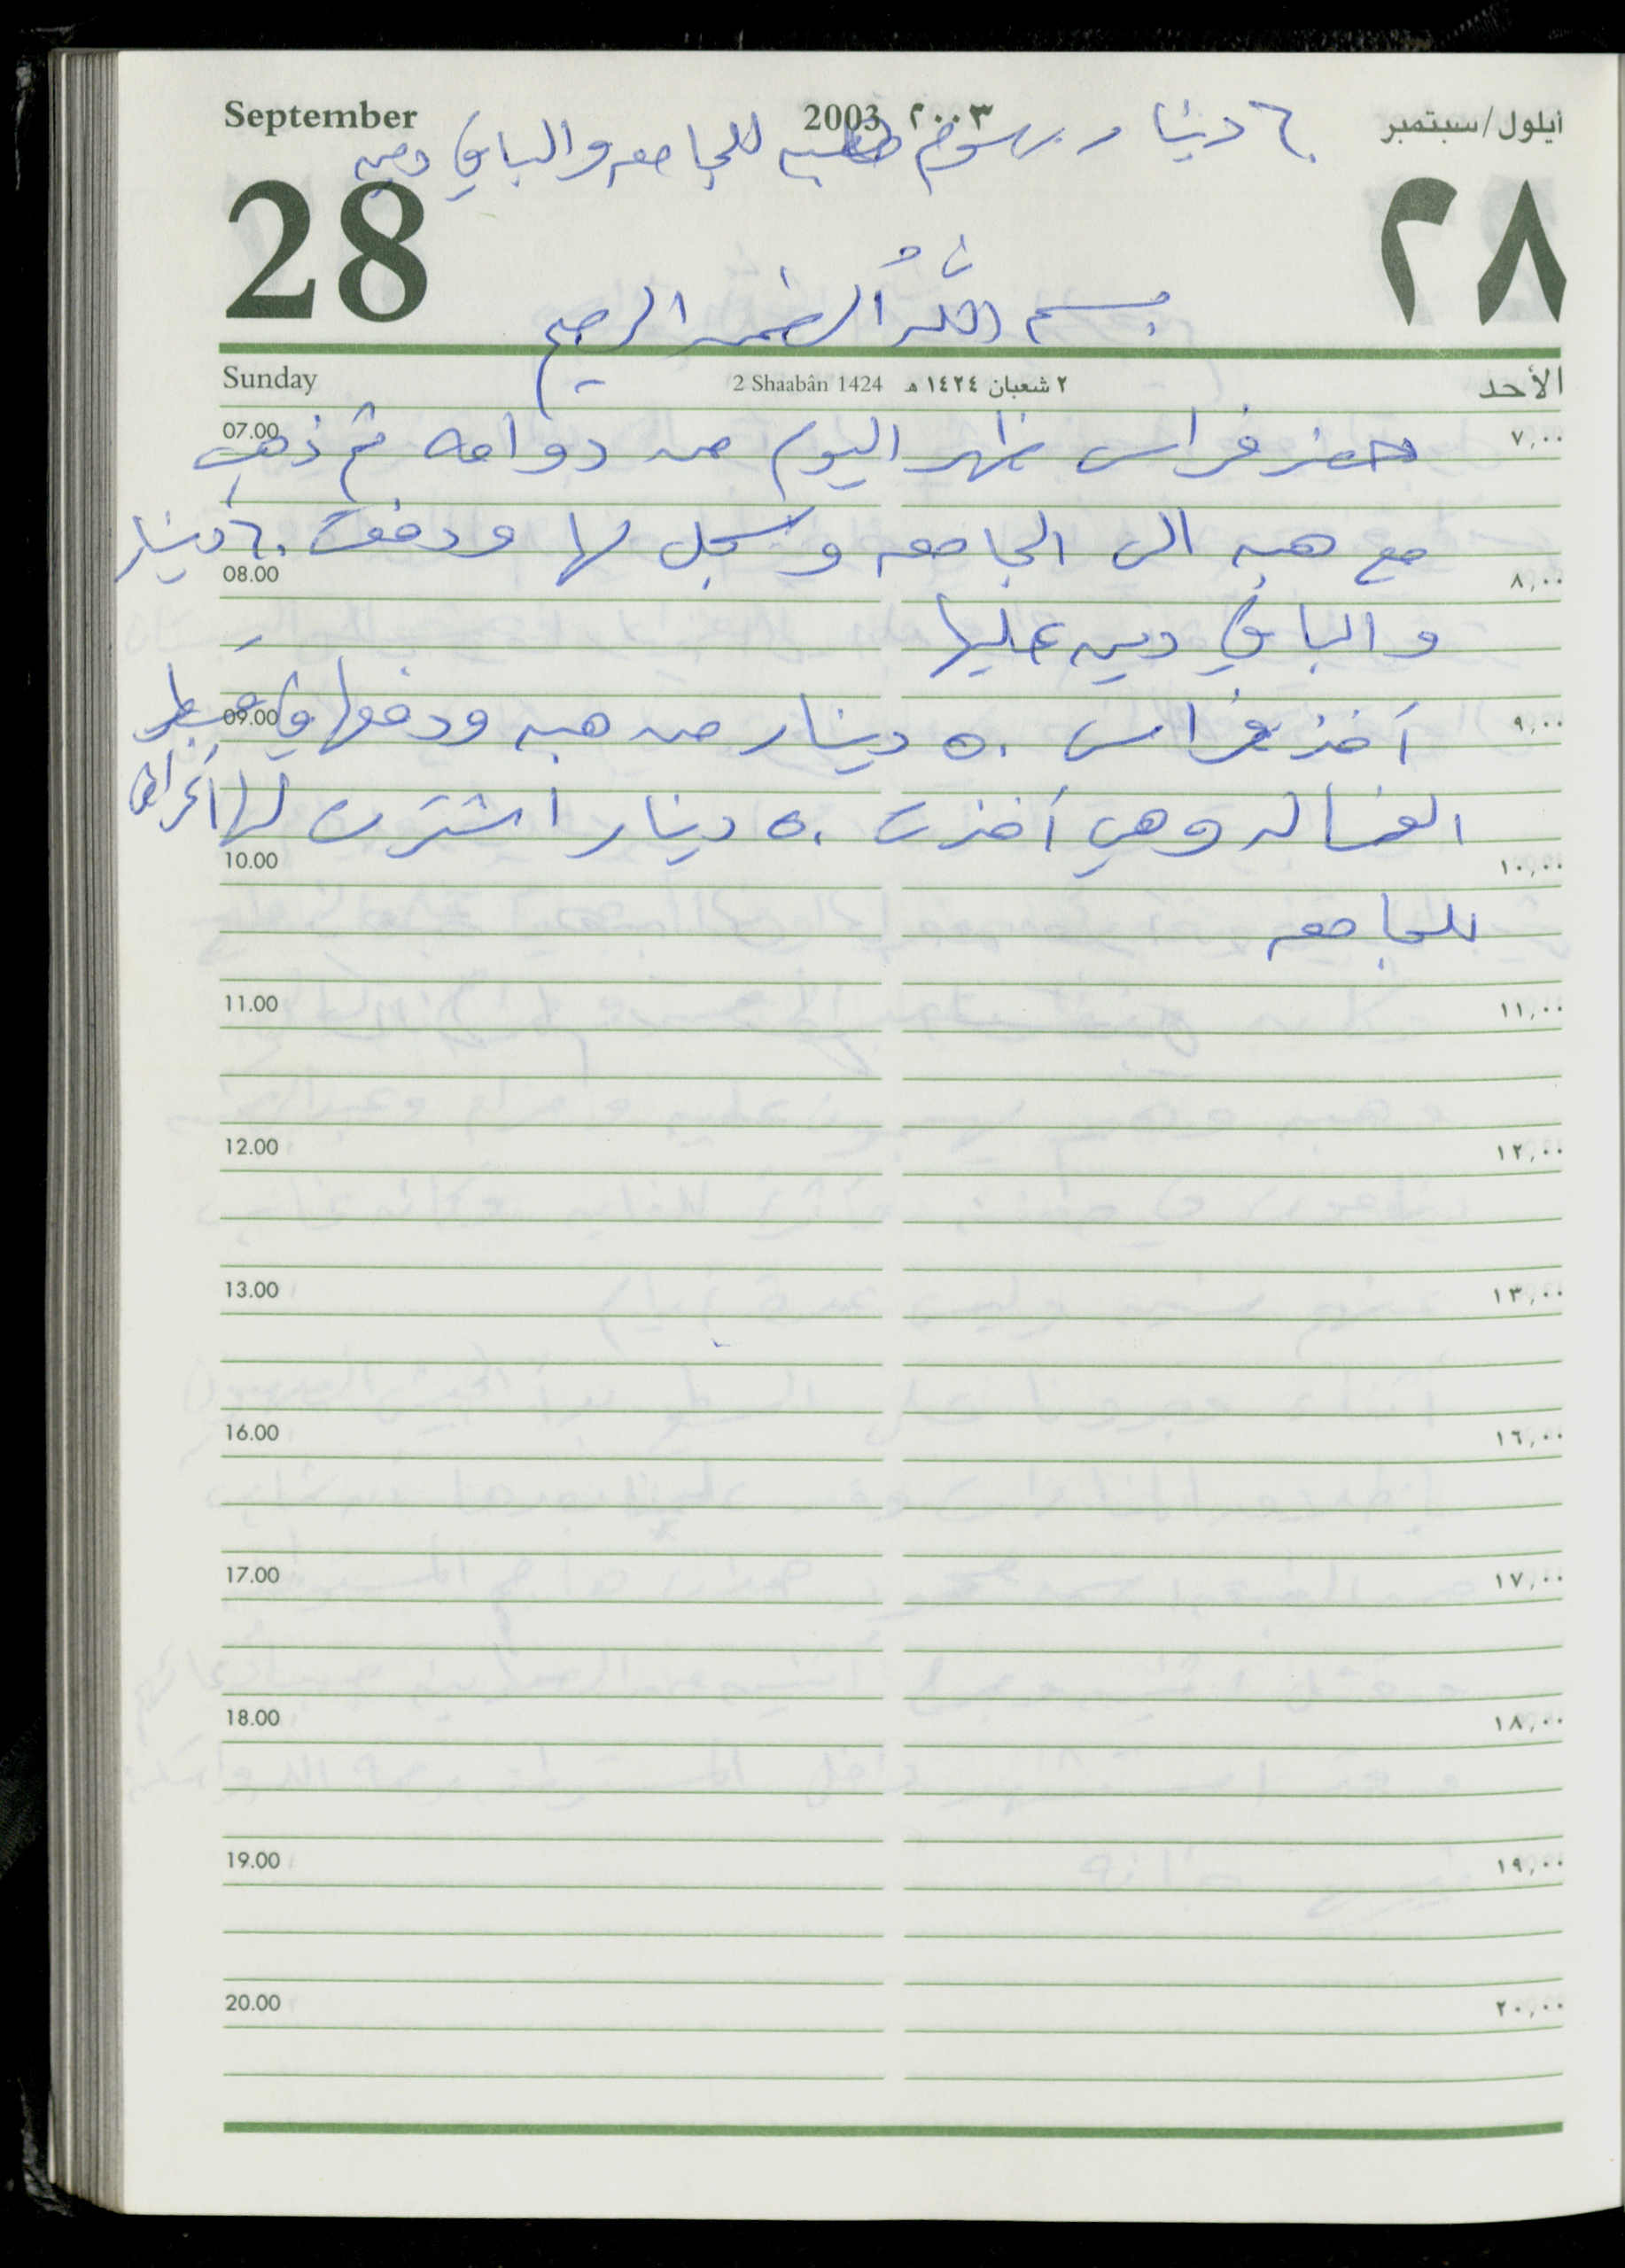 September 2003 ٢٠٠٣ أيلول/سبتمبر
٦٠ دينار رسوم هبه للجامعه والباقي دين
28 ٢٨
بسم الله الرحمن الرحيم
Sunday 2 Shaabân 1424 ٢ شعبان ١٤٢٤ هـ الأحد
07.00 ٧,٠٠
حضر فراس ظهر اليوم من دوامه ثم ذهب
مع هبه الى الجامعه وسجل لها ودفعت ٦٠ دينار
08.00 ٨,٠٠
والباقي دين عليها
09.00 ٩,٠٠
أخذ فراس ٥٠ دينار من هبه ودفعها في قسط
الغساله وهي أخذت ٥٠ دينار اشترت لها أغراض
10.00 ١٠,٠٠
للجامعه
11.00 ١١,٠٠
12.00 ١٢,٠٠
13.00 ١٣,٠٠
16.00 ١٦,٠٠
17.00 ١٧,٠٠
18.00 ١٨,٠٠
19.00 ١٩,٠٠
20.00 ٢٠,٠٠